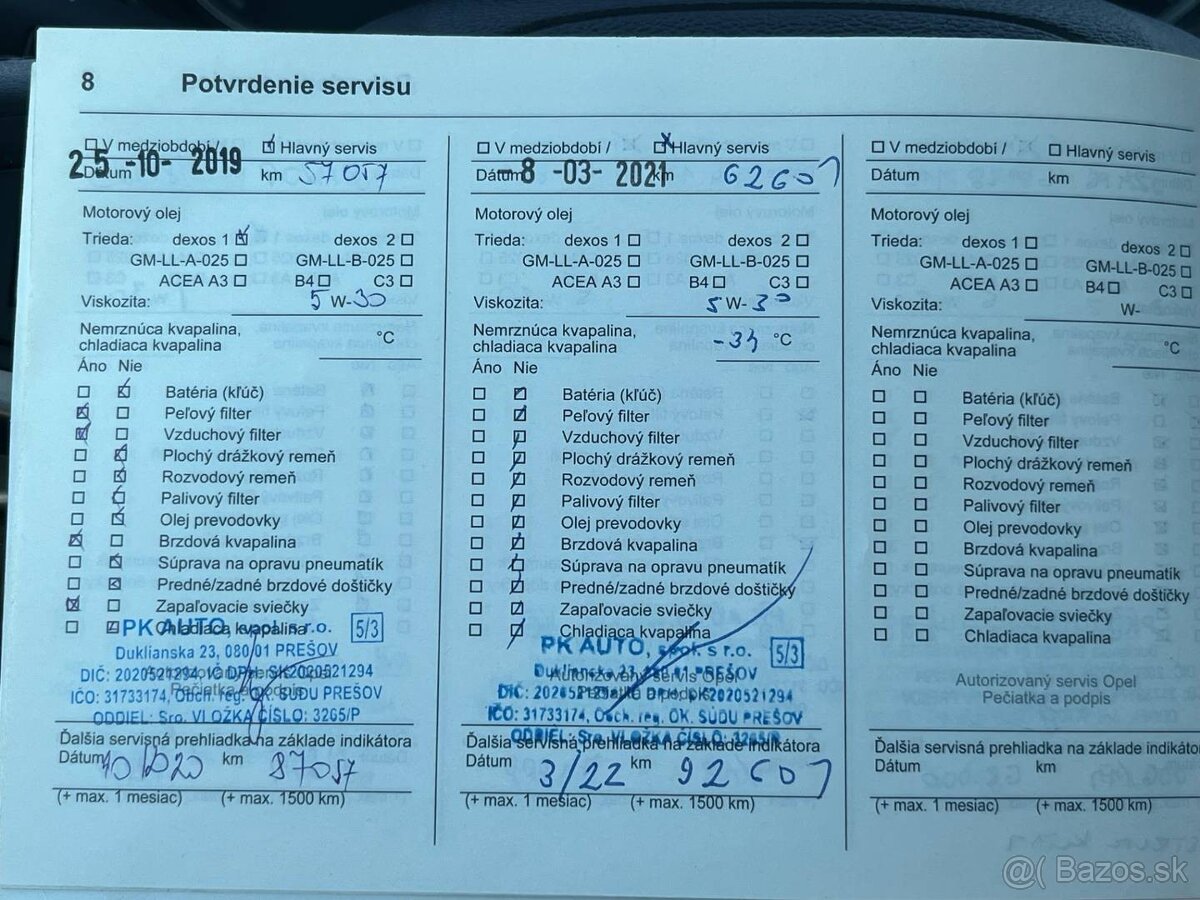 8 Potvrdenie servisu
V medziobdobí / Hlavný servis
25 -10- 2019
Dátum km 57057
Motorový olej
Trieda: dexos 1 dexos 2
GM-LL-A-025 GM-LL-B-025
ACEA A3 B4 C3
Viskozita: 5 W-30
Nemrznúca kvapalina,
chladiaca kvapalina °C
Áno Nie
Batéria (kľúč)
Peľový filter
Vzduchový filter
Plochý drážkový remeň
Rozvodový remeň
Palivový filter
Olej prevodovky
Brzdová kvapalina
Súprava na opravu pneumatík
Predné/zadné brzdové doštičky
Zapaľovacie sviečky
Chladiaca kvapalina
PK AUTO, spol. s r.o. 5/3
Duklianska 23, 080 01 PREŠOV
DIČ: 2020521294, IČ DPH: SK2020521294
Pečiatka a podpis
IČO: 31733174, Obch. reg. OK. SÚDU PREŠOV
ODDIEL: Sro, VLOŽKA ČÍSLO: 3265/P
Ďalšia servisná prehliadka na základe indikátora
Dátum 10/2020 km 87057
(+ max. 1 mesiac) (+ max. 1500 km)
V medziobdobí / Hlavný servis
-8 -03- 2021
Dátum km 62601
Motorový olej
Trieda: dexos 1 dexos 2
GM-LL-A-025 GM-LL-B-025
ACEA A3 B4 C3
Viskozita: 5 W-30
Nemrznúca kvapalina,
chladiaca kvapalina -34 °C
Áno Nie
Batéria (kľúč)
Peľový filter
Vzduchový filter
Plochý drážkový remeň
Rozvodový remeň
Palivový filter
Olej prevodovky
Brzdová kvapalina
Súprava na opravu pneumatík
Predné/zadné brzdové doštičky
Zapaľovacie sviečky
Chladiaca kvapalina
PK AUTO, spol. s r.o. 5/3
Duklianska 23, 080 01 PREŠOV
Autorizovaný servis Opel
DIČ: 2020521294, IČ DPH: SK2020521294
Pečiatka a podpis
IČO: 31733174, Obch. reg. OK. SÚDU PREŠOV
ODDIEL: Sro, VLOŽKA ČÍSLO: 3265/P
Ďalšia servisná prehliadka na základe indikátora
Dátum 3/22 km 92601
(+ max. 1 mesiac) (+ max. 1500 km)
V medziobdobí / Hlavný servis
Dátum km
Motorový olej
Trieda: dexos 1 dexos 2
GM-LL-A-025 GM-LL-B-025
ACEA A3 B4 C3
Viskozita: W-
Nemrznúca kvapalina,
chladiaca kvapalina °C
Áno Nie
Batéria (kľúč)
Peľový filter
Vzduchový filter
Plochý drážkový remeň
Rozvodový remeň
Palivový filter
Olej prevodovky
Brzdová kvapalina
Súprava na opravu pneumatík
Predné/zadné brzdové doštičky
Zapaľovacie sviečky
Chladiaca kvapalina
Autorizovaný servis Opel
Pečiatka a podpis
Ďalšia servisná prehliadka na základe indikáto
Dátum km
(+ max. 1 mesiac) (+ max. 1500 km)
@( Bazos.sk